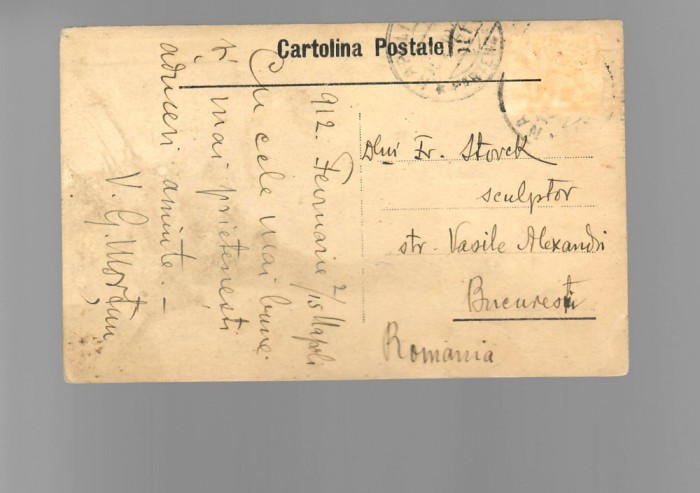 Cartolina Postale
NAPOLI
912. Februarie 2/15 Napoli
Cu cele mai bune
și mai prietenești
aduceri aminte. –
V. G. Morțun
Dlui Fr. Storck
sculptor
str. Vasile Alexandri
București
Romania